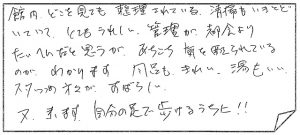 館内、どこを見ても整理されている。清掃もいきとど
いていて、とてもうれしい。管理が、都会より
たいへんだと思うが、あちこち気を配られている
のが、わかります。風呂も、きれい、湯もいい
スタッフの方々が、すばらしい。
又、来ます。自分の足で歩けるうちに!!